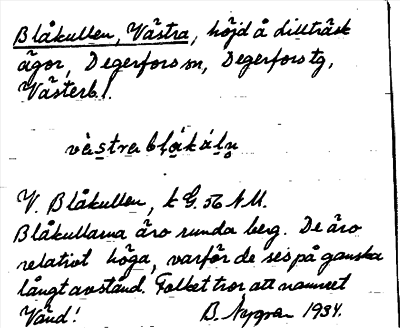 Blåkullen, Västra, höjd å Lillträsk
ägor, Degerfors sn, Degerfors tg,
Västerb l.
västra blåkáln̥
V. Blåkullen, k G. 56 N.U.
Blåkullarna äro runda berg. De äro
relativt höga, varför de ses på ganska
långt avstånd. Folket tror att namnet
Vänd! B. Nygren 1934.